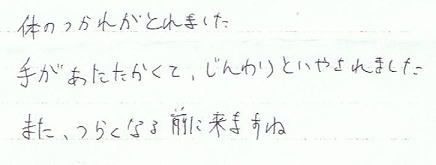 体のつかれがとれました
手があたたかくて、じんわりといやされました
また、つらくなる前に来ますね